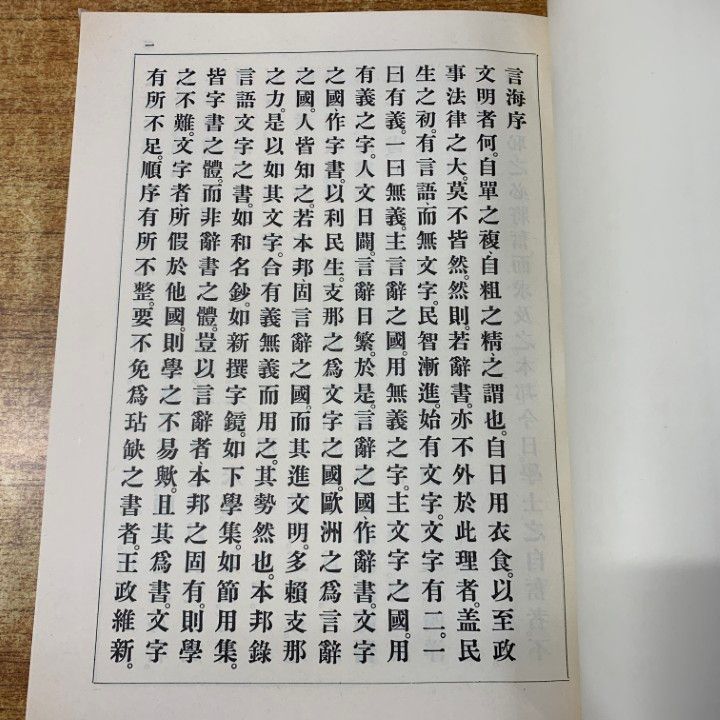 一
言海序
文明者何。自單之複、自粗之精、之謂也。自日用衣食。以至政
事法律之大。莫不皆然。然則若辭書。亦不外於此理者。盖民
生之初。有言語、而無文字。民智漸進。始有文字。文字有二。一
曰有義。一曰無義。主言辭之國。用無義之字。主文字之國。用
有義之字。人文日闢。言辭日繁。於是。言辭之國、作辭書。文字
之國、作字書。以利民生。支那之爲文字之國。歐洲之爲言辭
之國。人皆知之。若本邦、固言辭之國。而其進文明。多賴支那
之力。是以如其文字。合有義無義而用之。其勢然也。本邦錄
言語文字之書。如和名鈔。如新撰字鏡。如下學集。如節用集。
皆字書之體。而非辭書之體。豈以言辭者、本邦之固有。則學
之不難。文字者、所假於他國。則學之不易歟。且其爲書。文字
有所不足。順序有所不整。要不免爲玷缺之書者。王政維新。